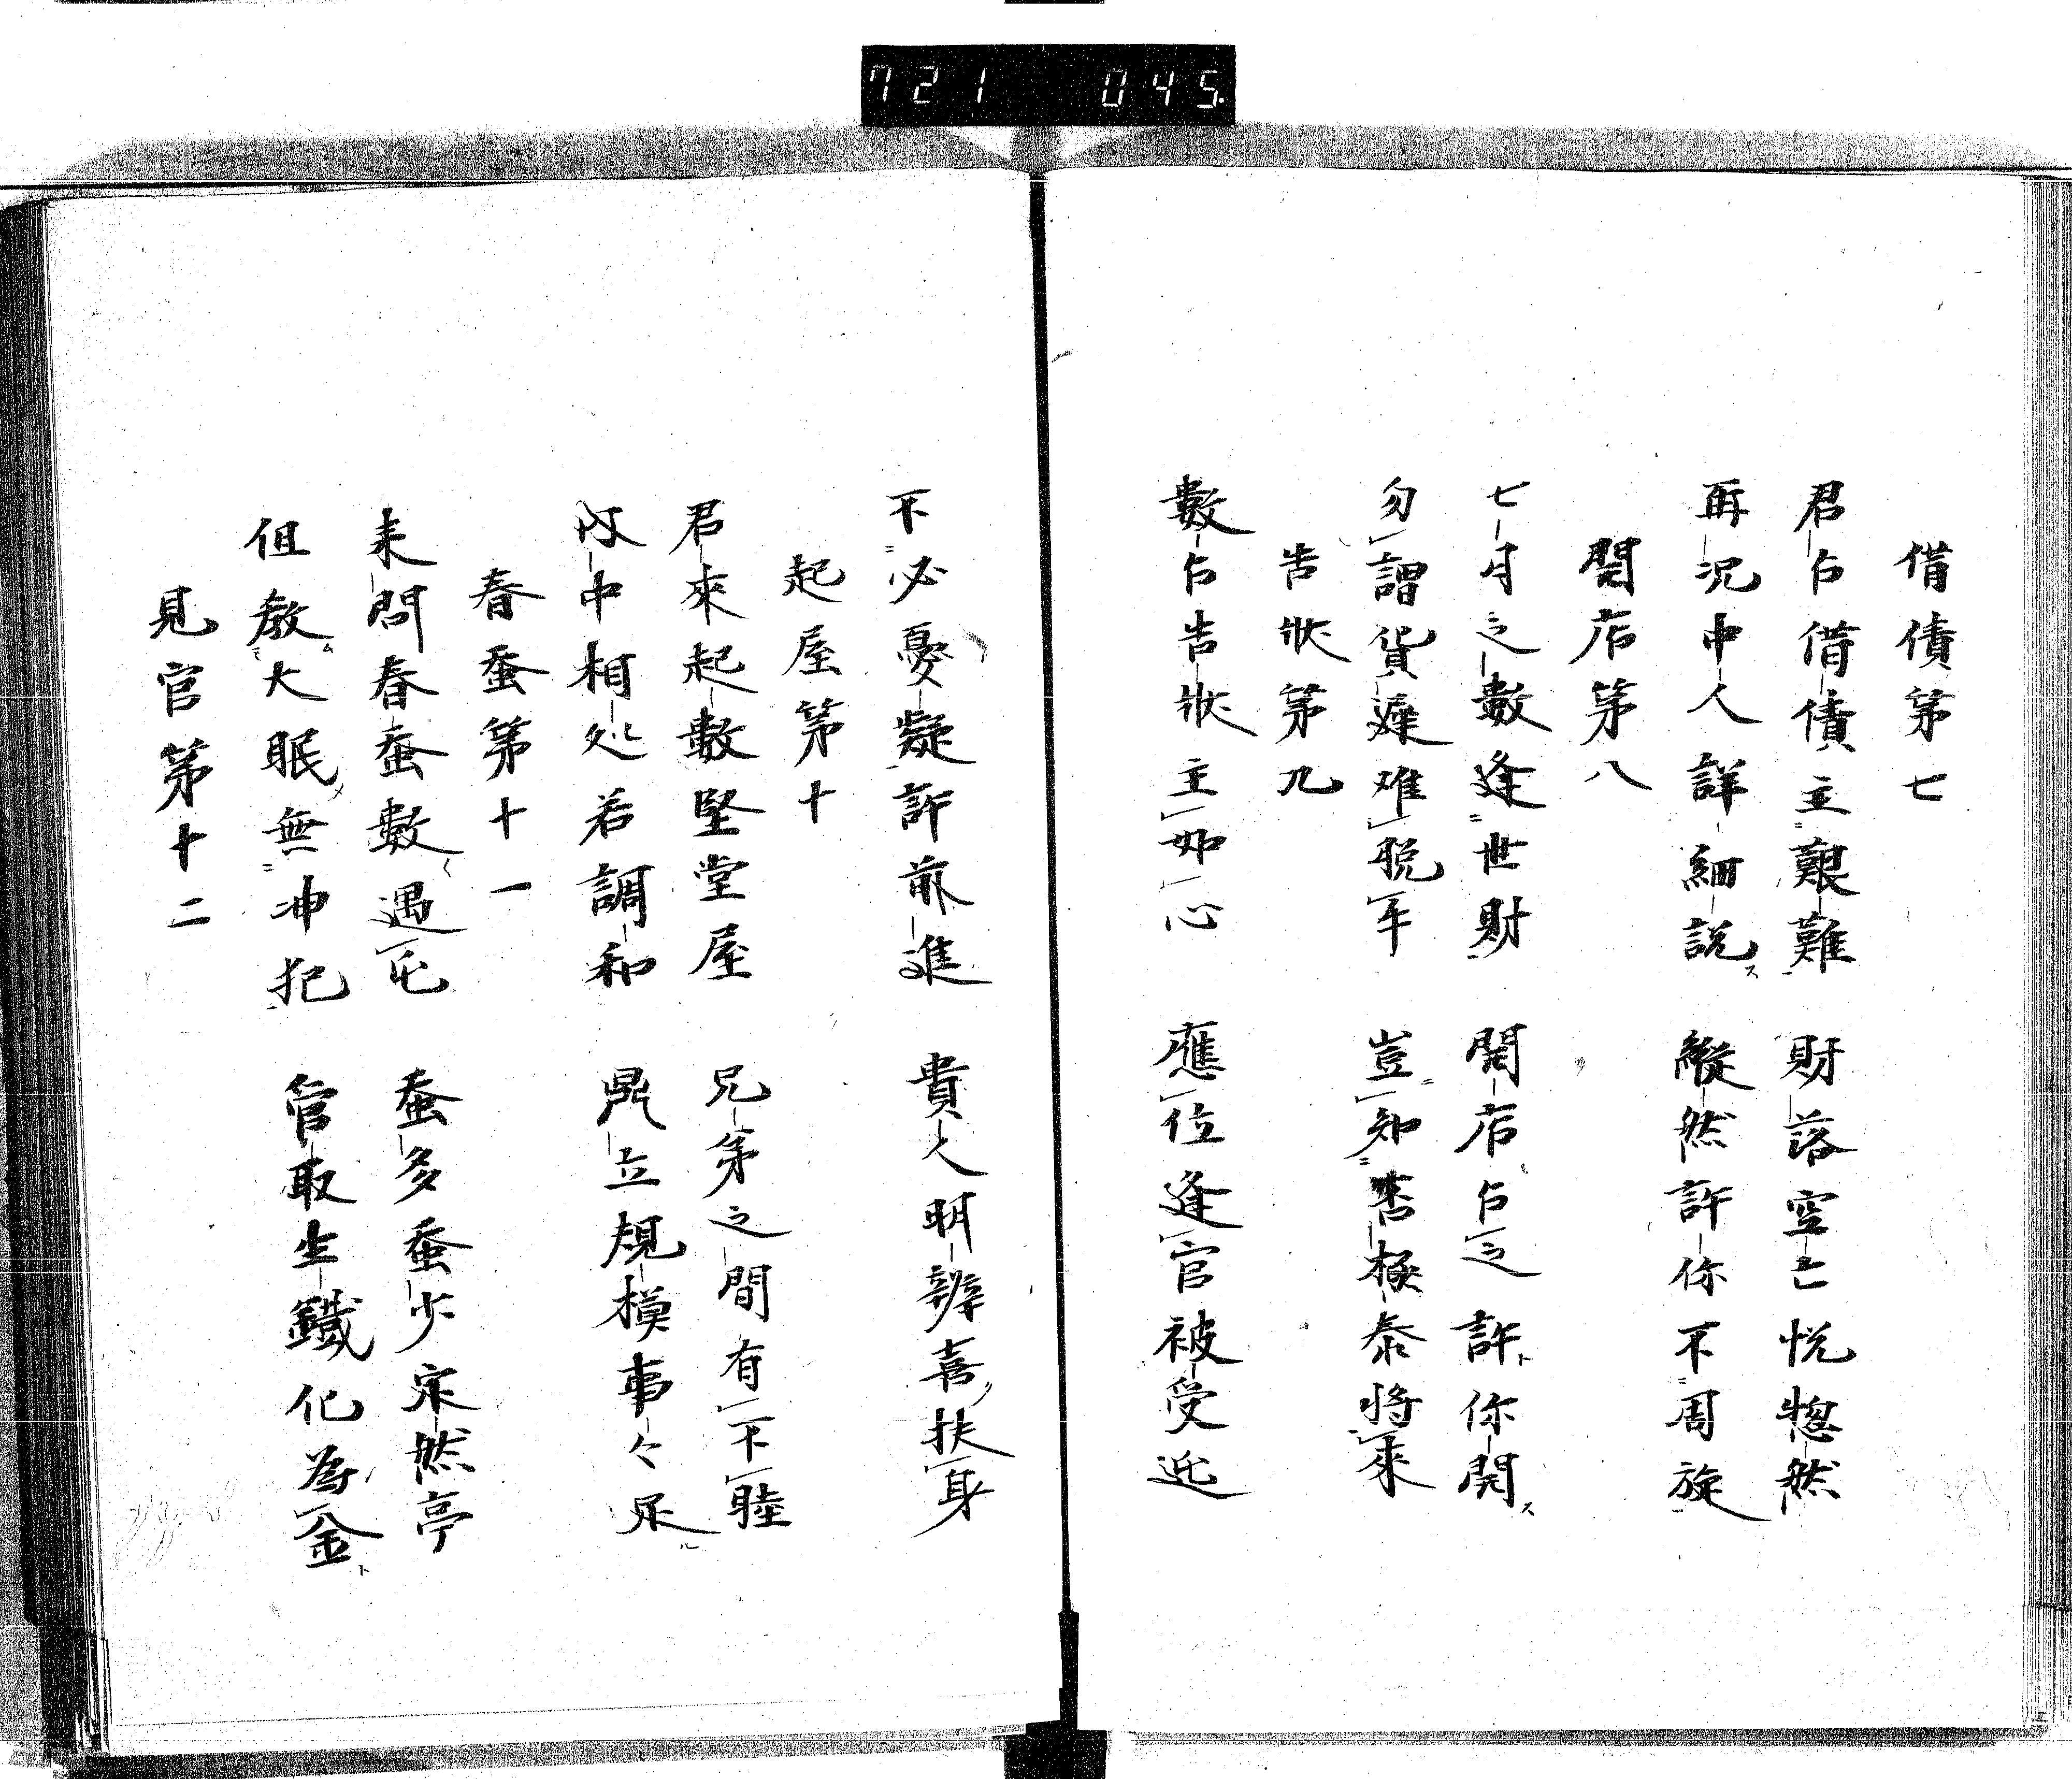 721 045
借債第七
君占借債主艱難 財落空亡恍惚然
再況中人詳細説 縦然許你不周旋
開店第八
七月之數逢世財 開店占之許你開
勿謂貨遲难脱手 豈知否極泰將來
告狀第九
數占告狀主如心 應位逢官被受迍
不必憂疑許前進 貴人明辨喜扶身
起屋第十
君來起數堅堂屋 兄弟之間有不睦
中相処若調和 鼎立規模事々足
春蚕第十一
来問春蚕數遇屯 蚕多蚕少宗然亭
但教大眠無冲犯 管取生鐵化為金
見官第十二